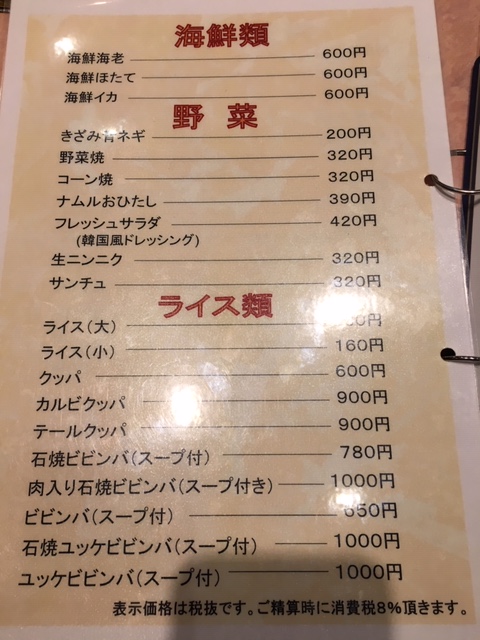 海鮮類
海鮮海老 600円
海鮮ほたて 600円
海鮮イカ 600円
野菜
きざみ青ネギ 200円
野菜焼 320円
コーン焼 320円
ナムルおひたし 390円
フレッシュサラダ 420円
(韓国風ドレッシング)
生ニンニク 320円
サンチュ 320円
ライス類
ライス(大)
ライス(小) 160円
クッパ 600円
カルビクッパ 900円
テールクッパ 900円
石焼ビビンバ(スープ付) 780円
肉入り石焼ビビンバ(スープ付き) 1000円
ビビンバ(スープ付) 650円
石焼ユッケビビンバ(スープ付) 1000円
ユッケビビンバ(スープ付) 1000円
表示価格は税抜です。ご精算時に消費税8%頂きます。